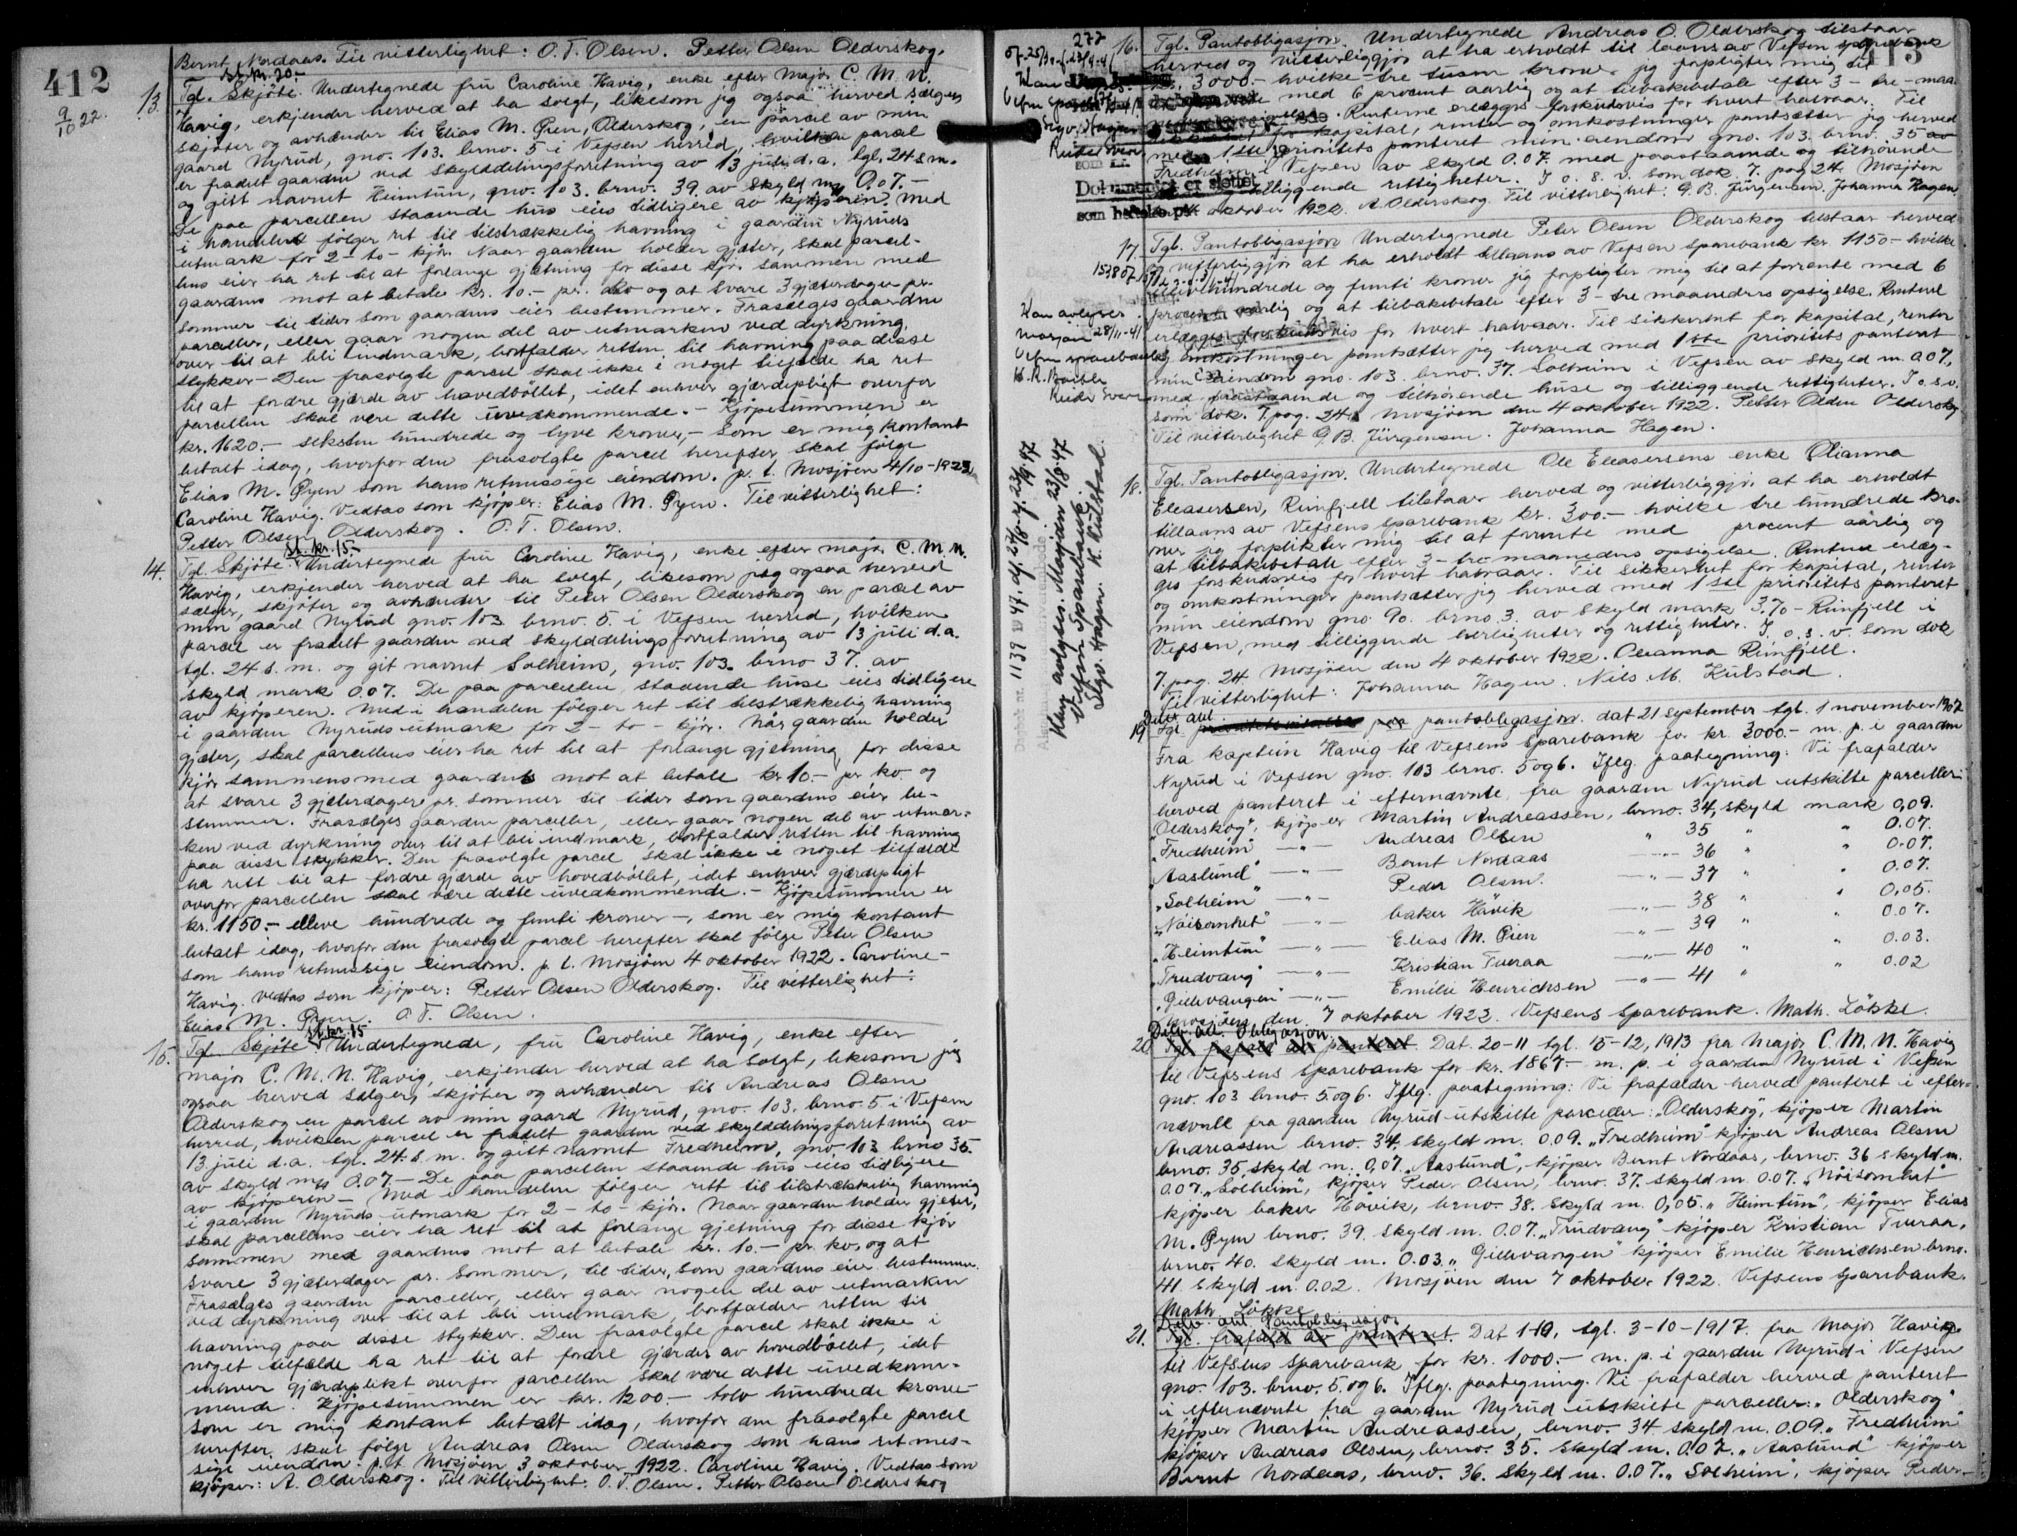 412
9/10 22.
Bernt Nordaas. Til vitterlighet: O. T. Olsen. Petter Olsen Olderskog.
st. kr. 20.-
13. Tgl. Skjöte. Undertegnede fru Caroline Havig, enke efter major C. M. N.
Havig, erkjender herved at ha solgt, likesom jeg ogsaa herved sælger,
skjöter og avhænder til Elias M. Øyen, Olderskog, en parcel av min
gaard Nyrud, gno. 103. brno. 5 i Vefsen herred, hvilken parcel
er fradelt gaarden ved skylddelingsforretning av 13 juli d.a. tgl. 24 s.m.
og gitt navnet Heimtun, gno. 103. brno. 39. av skyld m/ 0,07.-
De paa parcellen staaende hus eies tidligere av kjöperen. Med
i handelen følger ret til tilstrækkelig havning i gaarden Nyruds
utmark for 2- to- kjör. Naar gaarden holder gjæter, skal parcel-
lens eier ha ret til at forlange gjætning for disse kjör sammen med
gaardens mot at betale kr. 10.- pr. ko og at svare 3 gjæterdager pr.
sommer til tider som gaardens eier bestemmer. Frasælges gaarden
parceller, eller gaar nogen del av utmarken ved dyrkning,
over til at bli indmark, bortfalder retten til havning paa disse
stykker.- Den frasolgte parcel skal ikke i noget tilfælde ha ret
til at fordre gjærde av hovedbøllet, idet enhver gjærdepligt overfor
parcellen skal være dette uvedkommende.- Kjöpesummen er
kr. 1620.- seksten hundrede og tyve kroner,- som er mig kontant
betalt idag, hvorfor den frasolgte parcel herefter skal følge
Elias M. Øyen som hans retmessige eiendom. p.t. Mosjøen 4/10-1922
Caroline Havig. Vedtas som kjöper: Elias M. Øyen. Til vitterlighet:
Petter Olsen Olderskog. O. T. Olsen.
st. kr. 15.-
14. Tgl. Skjöte. Undertegnede fru Caroline Havig, enke efter major C. M. N.
Havig, erkjender herved at ha solgt, likesom jeg ogsaa herved
sælger, skjöter og avhænder til Peter Olsen Olderskog en parcel av
min gaard Nyrud gno. 103 brno. 5. i Vefsen herred, hvilken
parcel er fradelt gaarden ved skylddelingsforretning av 13 juli d.a.
tgl. 24 s.m. og git navnet Solheim, gno. 103. brno 37. av
skyld mark 0.07. De paa parcellen staaende huse eies tidligere
av kjöperen. Med i handelen følger ret til tilstrækkelig havning
i gaarden Nyruds utmark for 2- to- kjör. Når gaarden holder
gjæter, skal parcellens eier ha ret til at forlange gjetning for disse
kjör sammens med gaardens mot at betale kr 10.- pr ko. og
at svare 3 gjæterdager pr. sommer til tider som gaardens eier be-
stemmer. Frasælges gaarden parceller, eller gaar nogen del av utmar-
ken ved dyrkning over til at bli indmark, bortfalder retten til havning
paa disse stykker. Den frasolgte parcel skal ikke i noget tilfælde
ha rett til at fordre gjærde av hovedbøllet, idet enhver gjærdepligt
overfor parcellen skal være dette uvedkommende.- Kjöpesummen er
kr. 1150.- elleve hundrede og femti kroner-, som er mig kontant
betalt idag, hvorfor den frasolgte parcel herefter skal følge Peter Olsen
som hans retmessige eiendom. p.t. Mosjøen 4 oktober 1922. Caroline
Havig. Vedtas som kjöper: Petter Olsen Olderskog. Til vitterlighet:
Elias M. Øyen. O. T. Olsen.
st. kr. 15
15. Tgl. Skjöte. Undertegnede, fru Caroline Havig, enke efter
major C. M. N. Havig, erkjender herved at ha solgt, likesom jeg
ogsaa herved sælger, skjöter og avhænder til Andreas Olsen
Olderskog en parcel av min gaard Nyrud, gno. 103. brno. 5 i Vefsen
herred, hvilken parcel er fradelt gaarden ved skylddelingsforretning av
13 juli d.a. tgl. 24. s.m. og gitt navnet Fredheim, gno 103 brno 35.
av skyld m/ 0.07- De paa parcellen staaende hus eies tidligere
av kjöperen- Med i handelen følger rett til tilstrækkelig havning
i gaarden Nyruds utmark for 2- to- kjör. Naar gaarden holder gjeter,
skal parcellens eier ha ret til at forlange gjetning for disse kjör
sammen med gaardens mot at betale kr. 10.- pr. ko, og at
svare 3 gjæterdager pr. sommer, til tider, som gaardens eier bestemmer.
Frasælges gaarden parceller, eller gaar nogen del av utmarken
ved dyrkning over til at bli indmark, bortfalder retten til
havning paa disse stykker. Den frasolgte parcel skal ikke i
noget tilfælde ha ret til at fordre gjærder av hovedbøllet, idet
enhver gjærdeplikt overfor parcellen skal være dette uvedkom-
mende. Kjöpesummen er kr. 1200- tolv hundrede kroner
som er mig kontant betalt idag, hvorfor den frasolgte parcel
herefter skal følge Andreas Olsen Olderskog som hans retmes-
sige eiendom. p.t Mosjøen 3 oktober 1922. Caroline Havig. Vedtas som
kjöper: A. Olderskog. Til vitterlighet: O. T. Olsen. Petter Olsen Olderskog
413
277
16. Tgl. Pantobligasjon. Undertegnede Andreas O. Olderskog tilstaar
herved og vitterliggjør at ha erholdt til laans av Vefsen sparebank
kr. 3000.- hvilke- tre tusen kroner jeg forpligter mig til
med 6 procent aarlig og at tilbakebetale efter 3- tre- maa-
Renterne erlægges forskudsvis for hvert halvaar. Til
for kapital, renter og omkostninger pantsætter jeg herved
med 1ste prioritets panteret min eiendom gno. 103. brno. 35 av
Fredheim i Vefsen av skyld 0.07. med paastaaende og tilhørende
tilliggende rettigheter. I o. s. v. som dok. 7. pag 24. Mosjøen
oktober 1922. A. Olderskog. Til vitterlighet: G. B. Jürgensen. Johanna Hagen.
Dokumentet er slettet
som heftelse på
17. Tgl. Pantobligasjon Undertegnede Peter Olsen Olderskog tilstaar herved
og vitterliggjör at ha erholdt tillaans av Vefsen sparebank kr. 1150- hvilke
ellevehundrede og femti kroner jeg forpligter mig til at forrente med 6
procent aarlig og at tilbakebetale efter 3- tre maaneders opsigelse. Renterne
erlægges forskudsvis for hvert halvaar. Til sikkerhet for kapital, renter
og omkostninger pantsætter jeg herved med 1ste prioritets panteret
min eiendom gno. 103. brno. 37. Solheim i Vefsen av skyld m. 0.07,
med paastaaende og tilhørende huse og tilliggende rettigheter. I o.s.v.
som dok. 7. pag. 24. Mosjøen den 4 oktober 1922. Petter Olsen Olderskog
Til vitterlighet G. B. Jürgensen. Johanna Hagen.
Kan avlyses
Mosjøen 28/11-41
Vefsn sparebank
1139 D 47.
Kan avlyses. Mosjøen 23/8.47.
Vefsn Sparebank.
Sigv. Hagen. K. Kulstad.
18. Tgl. Pantobligasjon. Undertegnede Ole Eleasersens enke Olianna
Eleasersen, Rimfjell tilstaar herved og vitterliggjör at ha erholdt
tillaans av Vefsens sparebank kr. 300.- hvilke tre hundrede kro-
ner jeg forplikter mig til at forrente med procent aarlig og
at tilbakebetale efter 3- tre maaneders opsigelse. Renterne erlæg-
ges forskudsvis for hvert halvaar. Til sikkerhet for kapital, renter
og omkostninger pantsætter jeg herved med 1ste prioritets panteret
min eiendom gno. 90. brno. 3. av skyld mark 3.70- Rimfjell i
Vefsen, med tilliggende herligheter og rettigheter. I. o. s. v. som dok
7. pag. 24 Mosjøen den 4 oktober 1922. Olianna Rimfjell.
Til vitterlighet: Johanna Hagen. Nils M. Kulstad.
19. Tgl. pantobligasjon. dat 21 september tgl. 1 november 1907
Fra kaptein Havig til Vefsens sparebank for kr. 3000.- m. p. i gaarden
Nyrud i Vefsen gno. 103 brno. 5 og 6. Iflg. paategning: Vi frafalder
herved panteret i efternævnte, fra gaarden Nyrud utskilte parceller:
"Olderskog", kjöper Martin Andreassen, brno. 34, skyld mark 0,09.
"Fredheim" —"— Andreas Olsen " 35 " " 0.07.
"Aaslund" —"— Bernt Nordaas —"— 36 " " 0.07.
"Solheim" —"— Peder Olsen. —"— 37 " " 0.07.
"Nöisomhet" —"— baker Hövik —"— 38 " " 0.05.
"Heimtun" —"— Elias M. Øien —"— 39 " " 0.07.
"Trudvang" —"— Kristian Tveraa —"— 40 " " 0.03.
"Gillevangen" —"— Emilie Henrichsen —"— 41 " " 0.02
Mosjøen den 7 oktober 1923. Vefsens sparebank. Math. Lökke.
20. Delv. avl. Obligasjon. Dat. 20-11 tgl. 15-12, 1913 fra major C. M. N. Havig
til Vefsens sparebank for kr. 1867.- m. p. i gaarden Nyrud i Vefsen
gno. 103 brno. 5. og 6. Iflg. paategning: Vi frafalder herved panteret i efter-
nævnte fra gaarden Nyrud utskilte parceller: "Olderskog", kjöper Martin
Andreassen brno. 34, skyld m. 0.09. "Fredheim" kjöper Andreas Olsen
brno. 35 skyld m. 0,07. "Aaslund", kjöper Bernt Nordaas, brno. 36 skyld m.
0.07. "Solheim", kjöper Peder Olsen, brno. 37. skyld m. 0.07. "Nöisomhet"
kjöper baker Hövik, brno. 38. skyld m. 0,05. "Heimtun", kjöper Elias
M. Øyen brno. 39. skyld m. 0.07. "Trudvang" kjöper Kristian Tveraa,
brno. 40. skyld m. 0.03. "Gillevangen" kjöper Emilie Henrichsen brno.
41 skyld m. 0.02. Mosjøen den 7 oktober 1922. Vefsens sparebank.
Math. Lökke
21. Delv. avl. Pantobligasjon Dat 1-10, tgl. 3-10-1917. fra Major Havig
til Vefsens sparebank for kr. 1000.- m. p. i gaarden Nyrud i Vefsen
gno. 103. brno. 5. og 6. Iflg. paategning. Vi frafalder herved panteret
i efternævnte fra gaarden Nyrud utskilte parceller: "Olderskog"
kjöper Martin Andreassen, brno. 34 skyld m. 0.09. "Fredheim"
kjöper Andreas Olsen, brno. 35. skyld m. 0.07. "Aaslund" kjöper
Bernt Nordaas, brno. 36. skyld m. 0.07. "Solheim", kjöper Peder-